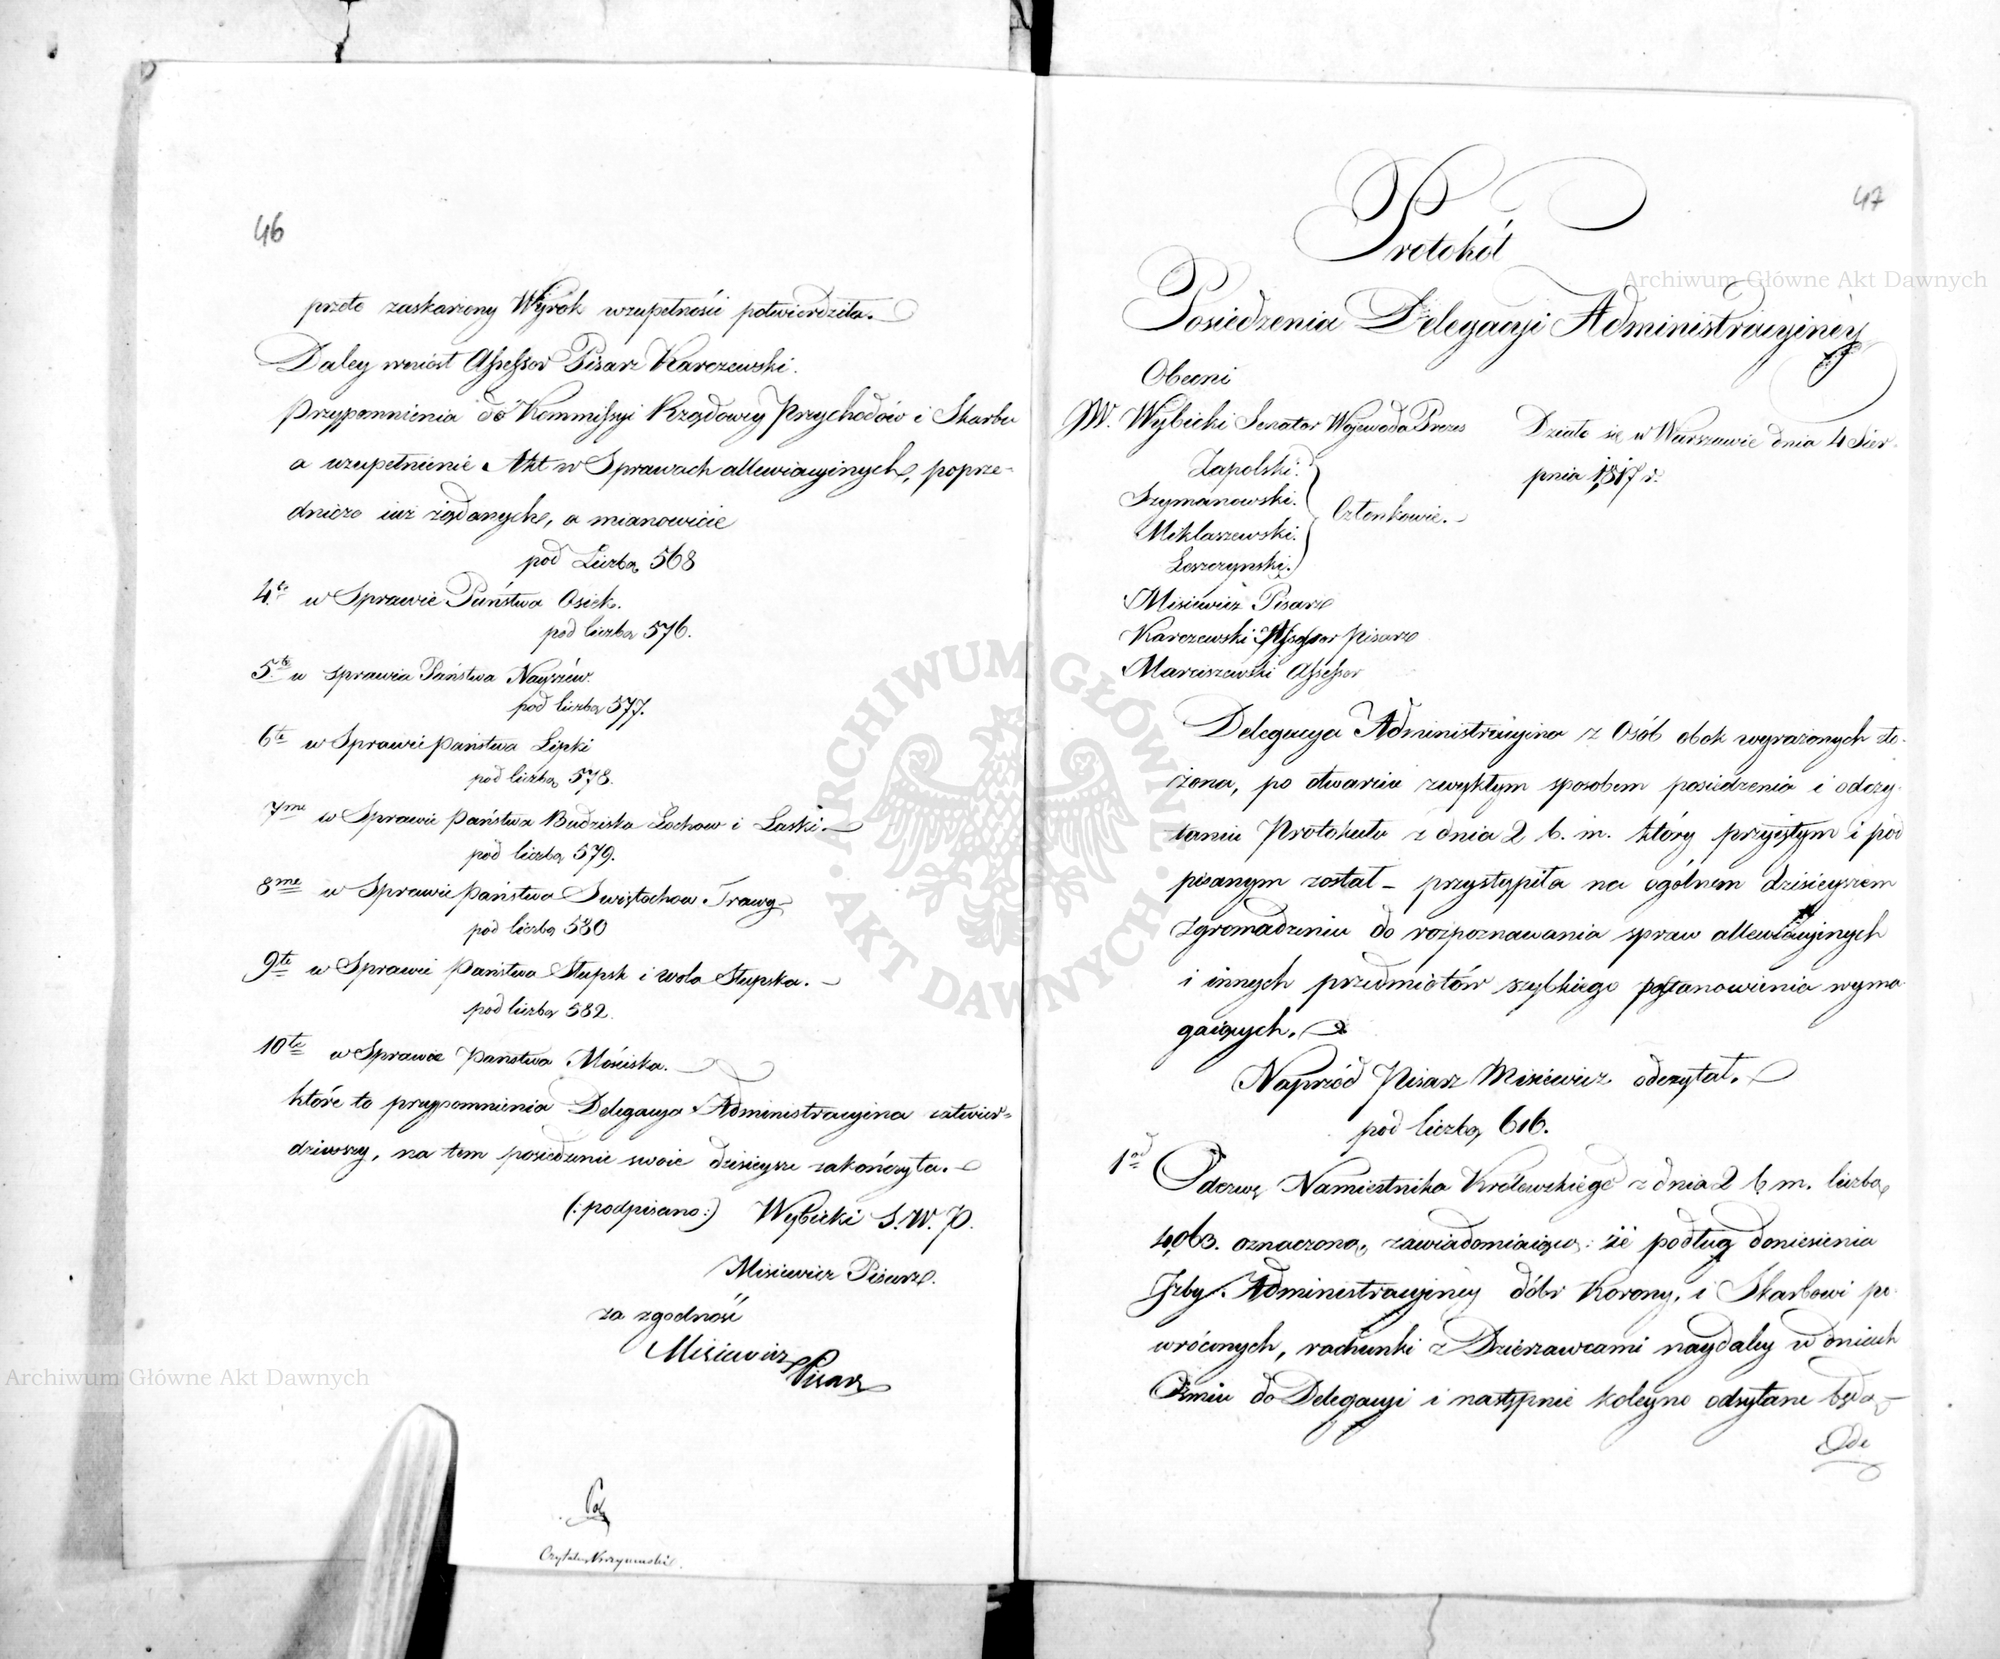 46
przeto zaskarżony Wyrok wzupełności potwierdziła.
Daley wniósł Assessor Pisarz Karczewski.
Przypomnienia do Kommissyi Rządowey Przychodów i Skarbu
a uzupełnienie Akt w Sprawach allewiacyinych, poprze-
dniczo iuż żądanych, a mianowicie
pod Liczbą 568
4.te w Sprawie Państwa Osiek.
pod liczbą 576.
5.te w sprawie Państwa
pod liczbą 577.
6te w Sprawie Państwa Lipki
pod liczbą 578.
7me w Sprawie Państwa Budziska Łochow i Laski.
pod liczbą 579.
8me w Sprawie Państwa Swiętochow Trawy
pod liczbą 580
9te w Sprawie Państwa Słupsk i wola Słupska.
pod liczbą 582.
10te w Sprawie Państwa Mościska.
które to przypomnienia Delegacya Administracyina zatwier=
dziwszy, na tem posiedzenie swoie dzisieysze zakończyła.
(:podpisano:) Wybicki S.W.P.
Misiewicz Pisarz.
za zgodność
Misiewicz Pisarz
Czytał
47
Protokół
Posiedzenia Delegacyi Administracyiney
Obecni
JW. Wybicki Senator Wojewoda Prezes
Działo się w Warszawie dnia 4 Sier-
pnia 1817 r.
Zapolski.
Szymanowski.
Miklaszewski.
Leszczynski.
Członkowie.
Misiewicz Pisarz
Karczewski Assessor Pisarz
Marciszewski Assessor
Delegacya Administracyina z Osób obok wyrażonych zło-
żona, po otwarciu zwykłym sposobem posiedzenia i odczy-
taniu Protokułu z dnia 2 b. m. który przyiętym i pod
pisanym został – przystąpiła na ogólnem dzisieyszem
Zgromadzeniu do rozpoznawania spraw allewiacyinych
i innych przedmiotów szybkiego postanowienia wyma
gaiących.
Naprzód Pisarz Misiewicz odczytał.
pod liczbą 616.
1od Odezwę Namiestnika Królewskiego z dnia 2 b. m. liczbą
4,063. oznaczoną, zawiadomiaiącą: iż podług doniesienia
Izby Administracyiney dóbr Korony, i Skarbowi po-
wróconych, rachunki z Dzierżawcami naydaley w dniach
Ośmiu do Delegacyi i następnie koleyno odsyłane będą
Ode
Archiwum Główne Akt Dawnych
Archiwum Główne Akt Dawnych
ARCHIWUM GŁÓWNE AKT DAWNYCH